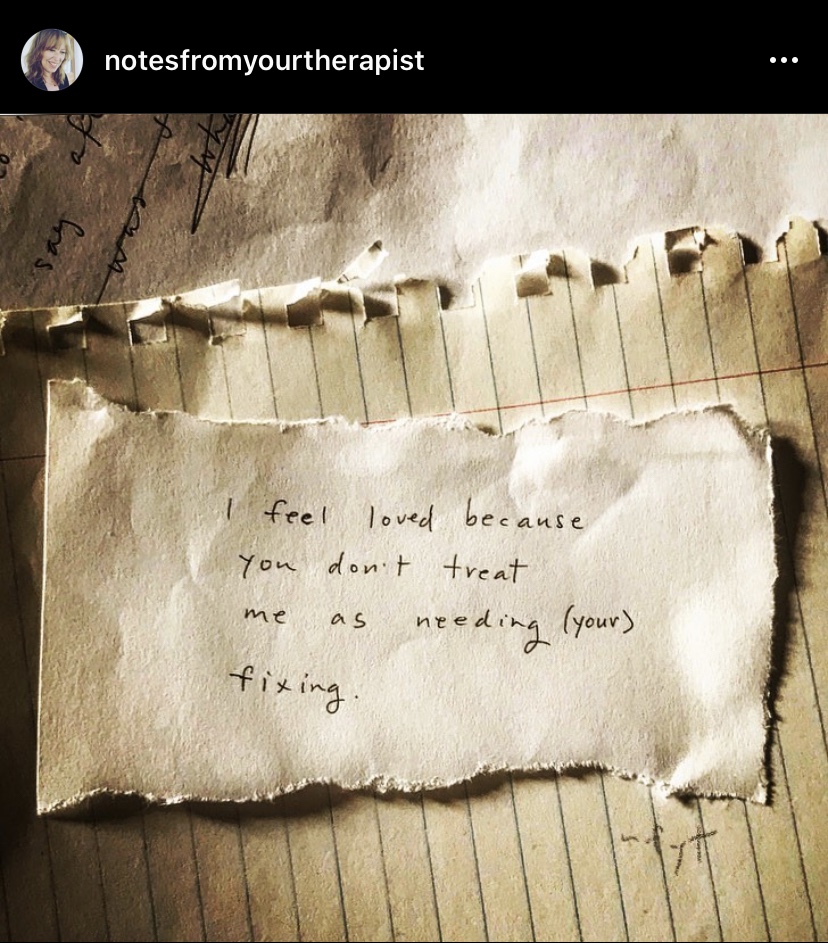 notesfromyourtherapist
say
was
I feel loved because
you don't treat
me as needing (your)
fixing.
nfyt